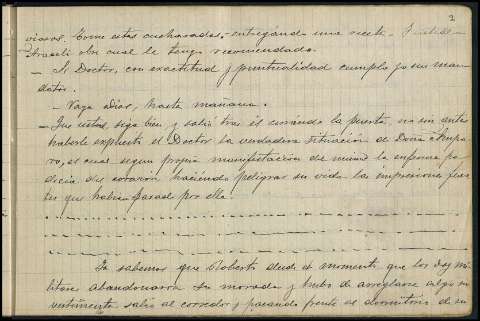 2
viosos. Tome estas cucharadas,- entregándo una receta.
cual le tengo recomendado.
- Si Doctor, con exactitud y puntualidad cumplo yo sus man-
datos.
- Vaya, adios, hasta mañana.
- Que usted siga bien, y salió tras él cerrando la puerta, no sin antes
haberle expuesto el Doctor la verdadera situación de Doña Ampa-
ro, el cual segun propia manifestación del mismo la enferma pa-
decia del corazón haciendo peligrar su vida las impresiones fuer-
tes que habian pasado por ella.
Ya sabemos que Roberto desde el momento que los dos mi-
litares abandonaron su morada y hubo de arreglarse algo su
vestimenta salió al corredor y pasando frente al dormitorio de su